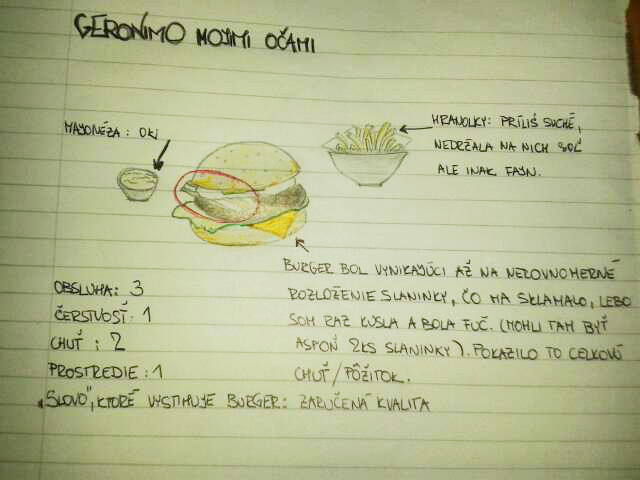 GERONIMO MOJIMI OČAMI
MAYONÉZA: OK!
HRANOLKY: PRÍLIŠ SUCHÉ,
NEDRŽALA NA NICH SOĽ
ALE INAK FAJN.
BURGER BOL VYNIKAJÚCI AŽ NA NEROVNOMERNÉ
ROZLOŽENIE SLANINKY, ČO MA SKLAMALO, LEBO
SOM RAZ KUSLA A BOLA FUČ. (MOHLI TAM BYŤ
ASPOŇ 2KS SLANINKY). POKAZILO TO CELKOVÚ
CHUŤ/PÔŽITOK.
OBSLUHA: 3
ČERSTVOSŤ: 1
CHUŤ: 2
PROSTREDIE: 1
„SLOVO", KTORÉ VYSTIHUJE BURGER: ZARUČENÁ KVALITA